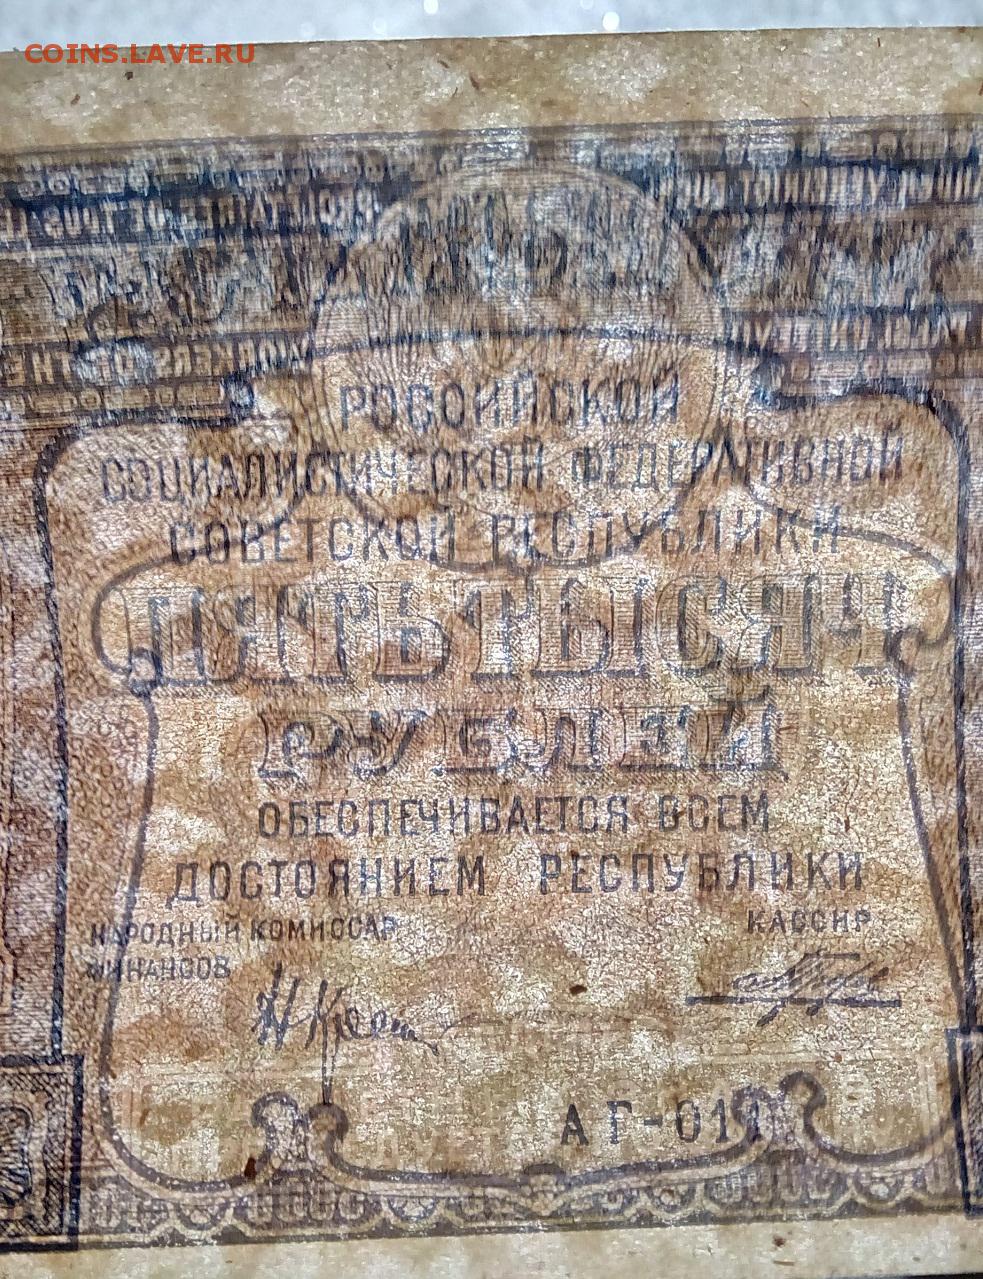 COINS.LAVE.RU
РОССИЙСКОЙ
СОЦИАЛИСТИЧЕСКОЙ ФЕДЕРАТИВНОЙ
СОВЕТСКОЙ РЕСПУБЛИКИ
ПЯТЬ ТЫСЯЧ
РУБЛЕЙ
ОБЕСПЕЧИВАЕТСЯ ВСЕМ
ДОСТОЯНИЕМ РЕСПУБЛИКИ
НАРОДНЫЙ КОМИССАР КАССИР
ФИНАНСОВ